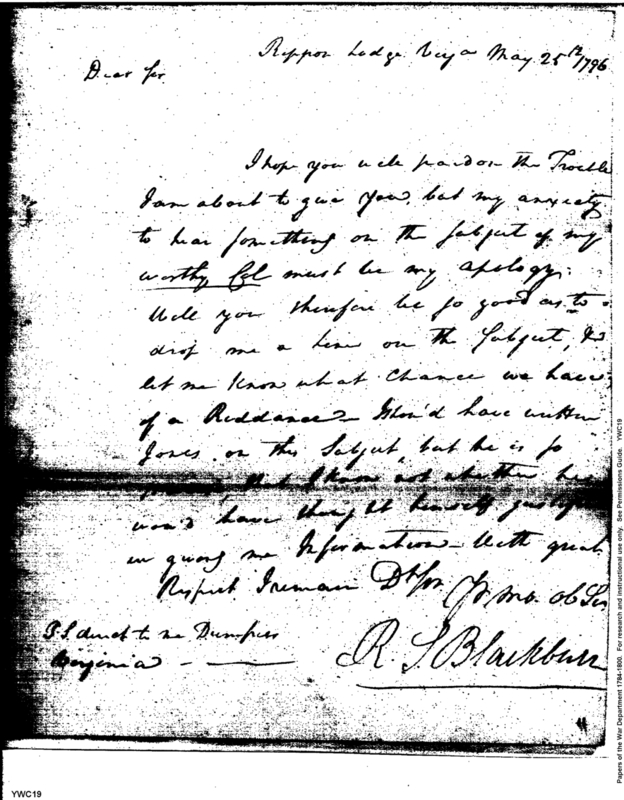 Rippon Lodge Virga May 25th 1796
Dear Sir
I hope you will pardon the Trouble
I am about to give you, but my anxiety
to hear something on the subject of my
worthy Col must be my apology.
Will you therefore be so good as to
drop me a line on the Subject, &
let me know what chance we have
of a Riddance – I shou'd have written
Jones on this Subject, but he is so
that I know not whether he
wou'd have thought himself
in giving me Information – With great
Respect I remain Dr Sir Yr. mo. ob Ser
R. S. Blackburn
P.S. direct to me Dumfries
Virginia
YWC19
Papers of the War Department 1784-1800. For research and instructional use only. See Permissions Guide. YWC19